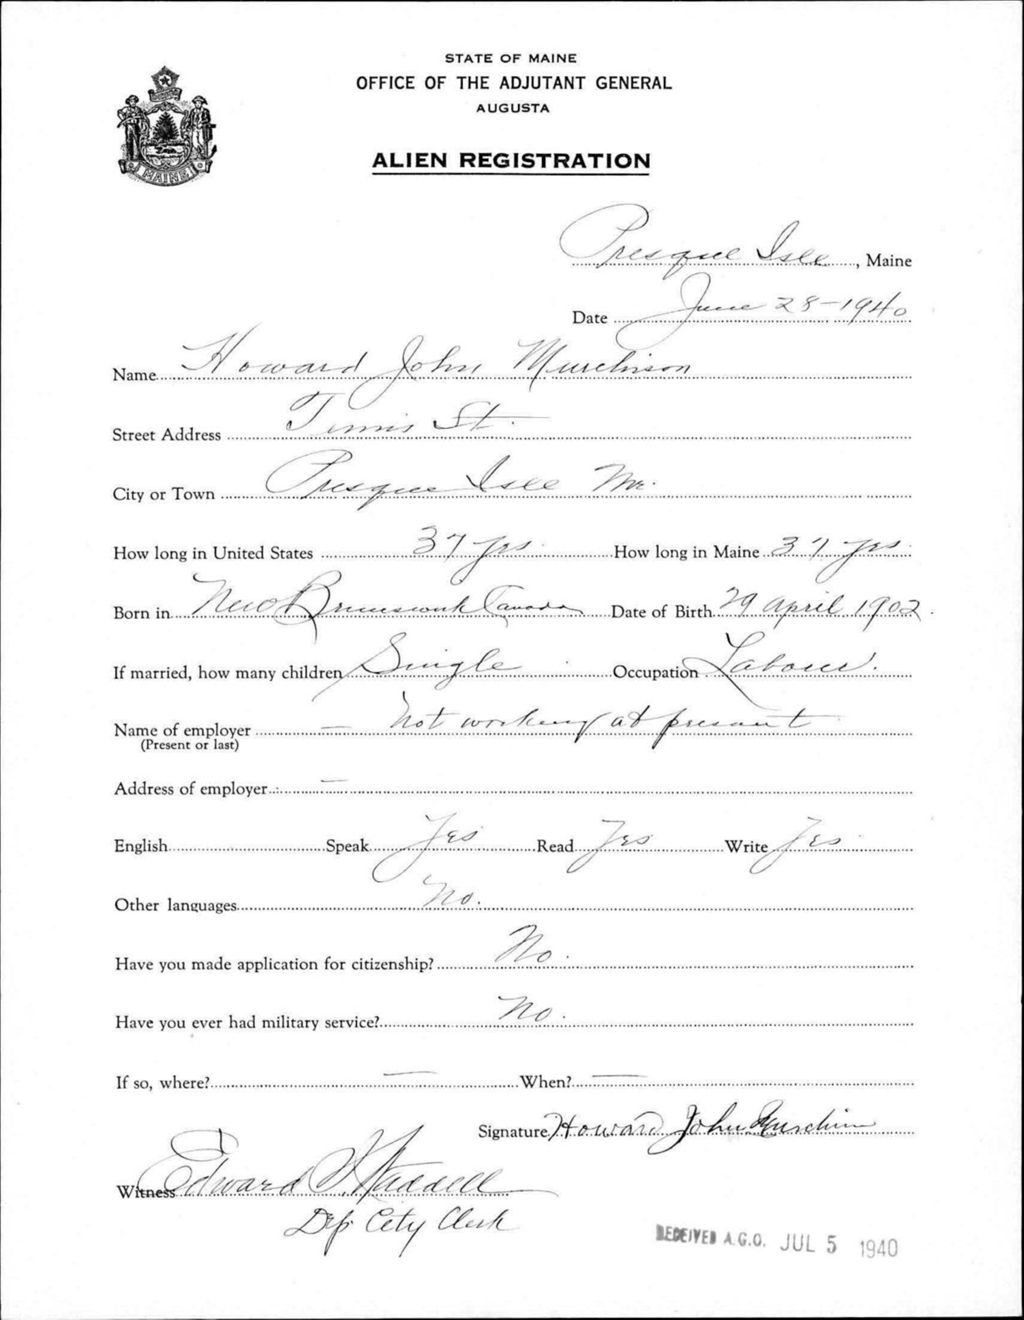 STATE OF MAINE
OFFICE OF THE ADJUTANT GENERAL
AUGUSTA
MAINE
ALIEN REGISTRATION
Presque Isle, Maine
Date June 28-1940
Name Howard John Murchison
Street Address St.
City or Town Presque Isle Me.
How long in United States 37 yrs. How long in Maine 37 yrs.
Born in New Brunswick Canada Date of Birth 29 April 1902.
If married, how many children Single Occupation Labourer.
Name of employer — Not working at present
(Present or last)
Address of employer —
English Speak Yes Read Yes Write Yes
Other languages No.
Have you made application for citizenship? No.
Have you ever had military service? No.
If so, where? — When? —
Signature Howard John
Witness Edward
Dep City Clerk
RECEIVED A.G.O. JUL 5 1940